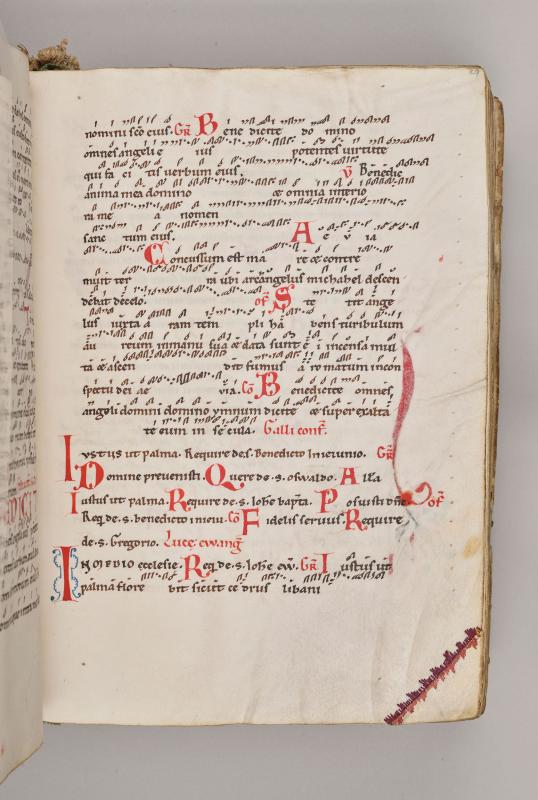 nomini sco eius. Gr̄ Bene dicite do mino
om̄nes angeli e ius potentes virtute
qui fa ci tis verbum eius. V̄ Benedic
anima mea domino & omnia interio
ra me a nomen
sanc tum eius. A e v ia
Concussum est ma re & contre
muit ter ra ubi archangelus michahel descen
debat decelo. of S te tit ange
lus iuxta a ram tem pli hā bens turibulum
au reum inmanu sua & data sunt ei incensa mul
ta & ascen dit fumus aromatum incon
spectu dei ae via. Co Benedicite omnes
angeli domini domino ymnum dicite & super exalta
te eum in se cula. Galli conf.
Iustus ut palma. Require de s. Benedicto In ieiunio. Gr̄
Domine prevenisti. Quere de s. oswaldo. Alla
Iustus ut palma. Require de .s. Iohe bapta. Posuisti dn̄e of
Req de .s. benedicto inieiu. Co Fidelis servus. Require
de .s. Gregorio. Luce ewang
IN MEDIO ecclesie. Req de .s. Iohe ew. Gr̄ Iustus ut
palma flore bit sicut ce drus libani